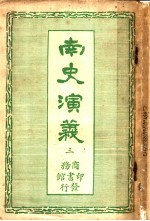 南史演義
三
商務印書館發行